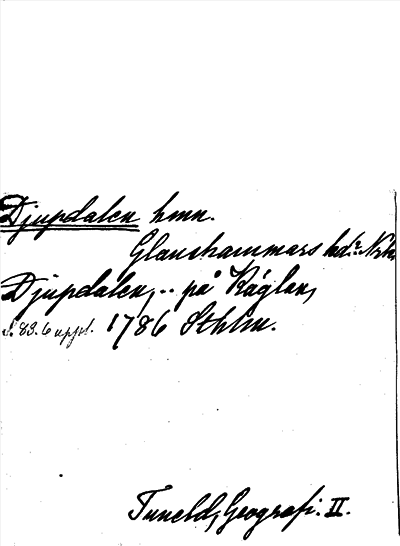 Djupdalen hmn.
Glanshammars hd: Nrke
Djupdalen, .. på Käglan,
S. 83. 6 uppl. 1786 Sthlm.
Tuneld, Geografi. II.